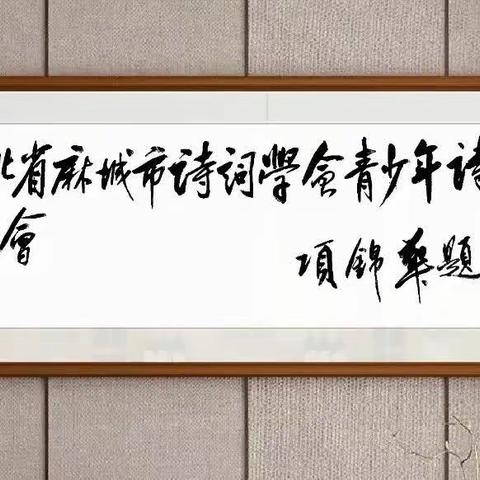 北省麻城市诗词學会青少年诗
會
項錦華題